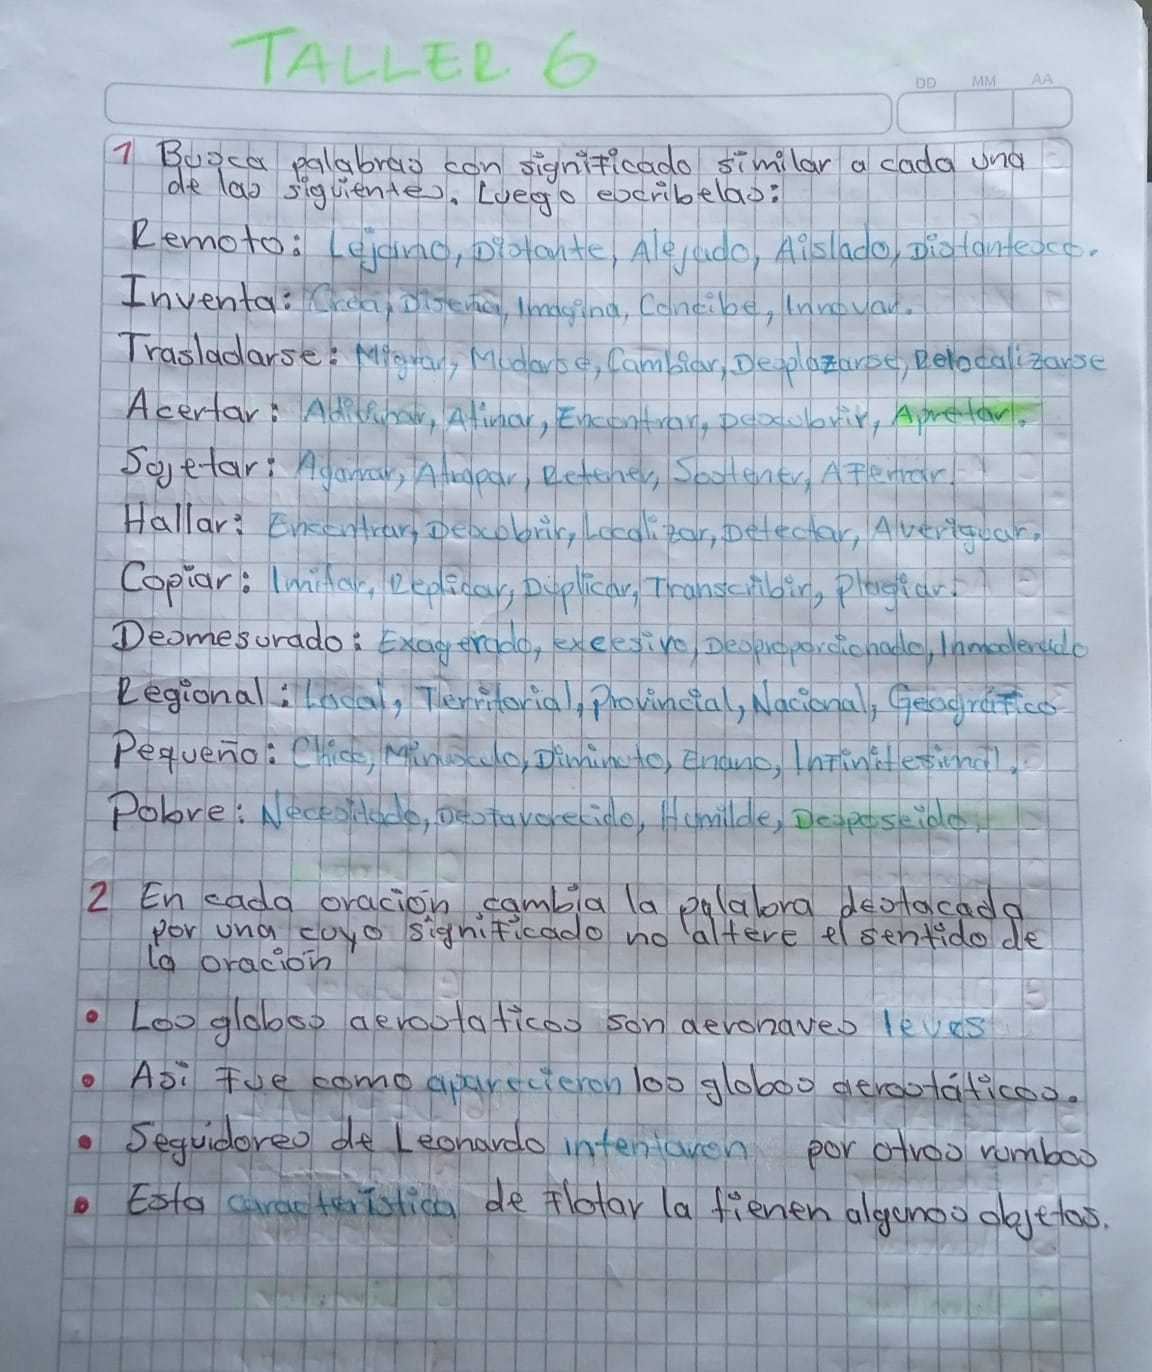 TALLER 6
DD MM AA
1 Busca palabras con significado similar a cada una
de las siguientes. Luego escribelas:
Remoto: Lejano, Distante, Alejado, Aislado, Distantesco.
Inventa: Crea, Diseña, Imagina, Concibe, Innovar.
Trasladarse: Migrar, Mudarse, Cambiar, Desplazarse, Relocalizarse
Acertar: Adivinar, Atinar, Encontrar, Descubrir, Apretar.
Sujetar: Agarrar, Atrapar, Retener, Sostener, Aferrar.
Hallar: Encontrar, Descubrir, Localizar, Detectar, Averiguar.
Copiar: Imitar, Replicar, Duplicar, Transcribir, Plagiar.
Desmesurado: Exagerado, excesivo, Desproporcionado, Inmoderado
Regional: Local, Territorial, Provincial, Nacional, Geográfico
Pequeño: Chico, Minusculo, Diminuto, Enano, Infinitesimal,
Pobre: Necesitado, Desfavorecido, Humilde, Desposeido.
2 En cada oración cambia la palabra destacada
por una cuyo significado no altere el sentido de
la oración
• Los globos aerostaticos son aeronaves leves
• Asi fue como aparecieron los globos aerostáticos.
• Seguidores de Leonardo intentaron por otros rumbos
• Esta característica de flotar la tienen algunos objetos.